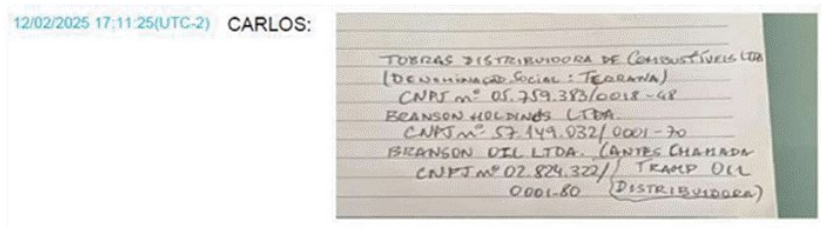 12/02/2025 17:11:25(UTC-2) CARLOS:
TOBRAS DISTRIBUIDORA DE COMBUSTÍVEIS LTDA
(DENOMINAÇÃO SOCIAL: TERRANA)
CNPJ nº 05.759.383/0018-48
BRANSON HOLDINGS LTDA.
CNPJ nº 57.149.032/0001-70
BRANSON OIL LTDA. (ANTES CHAMADA
CNPJ nº 02.824.322/ TRAMP OIL
0001-80 (DISTRIBUIDORA)